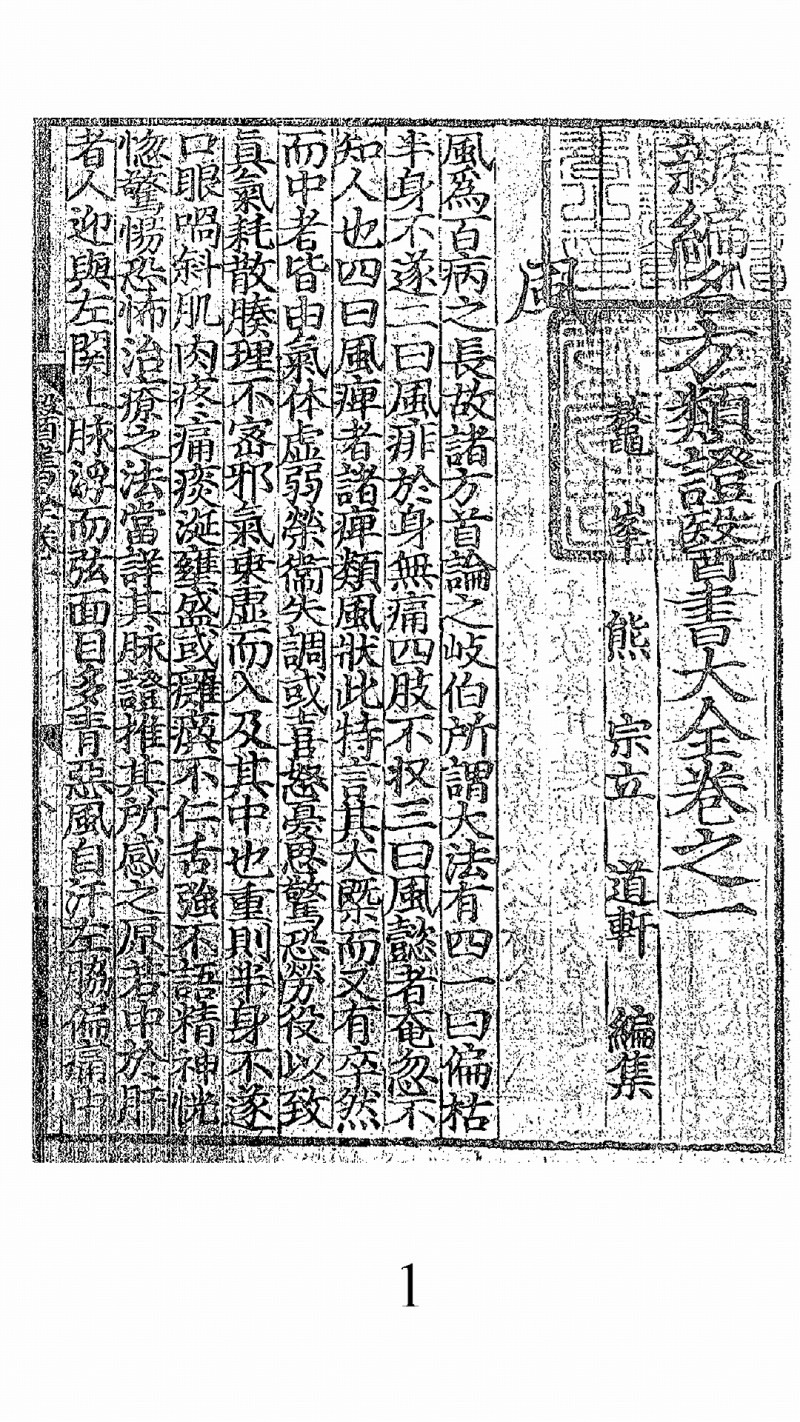 新編名方類證醫書大全卷之一
鼇峯 熊 宗立 道軒 編集
風
風爲百病之長故諸方首論之岐伯所謂大法有四一曰偏枯
半身不遂二曰風痱於身無痛四肢不収三曰風懿者奄忽不
知人也四曰風痺者諸痺類風狀此特言其大槩而又有卒然
而中者皆由氣体虚弱榮衞失調或喜怒憂思驚恐勞役以致
眞氣耗散腠理不密邪氣乗虚而入及其中也重則半身不遂
口眼喎斜肌肉疼痛痰涎壅盛或癱瘓不仁舌強不語精神恍
惚驚惕恐怖治療之法當詳其脉證推其所感之原若中於肝
者人迎與左関上脉浮而弦面目多青惡風自汗左脇偏痛中
1